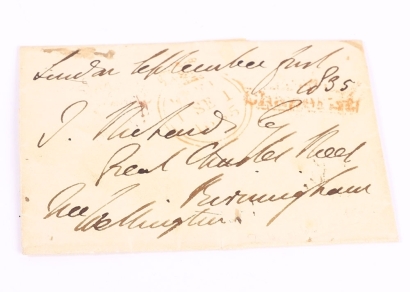 London September first
1835
J. Richards Esq
Great Charles Street
Birmingham
Wellington